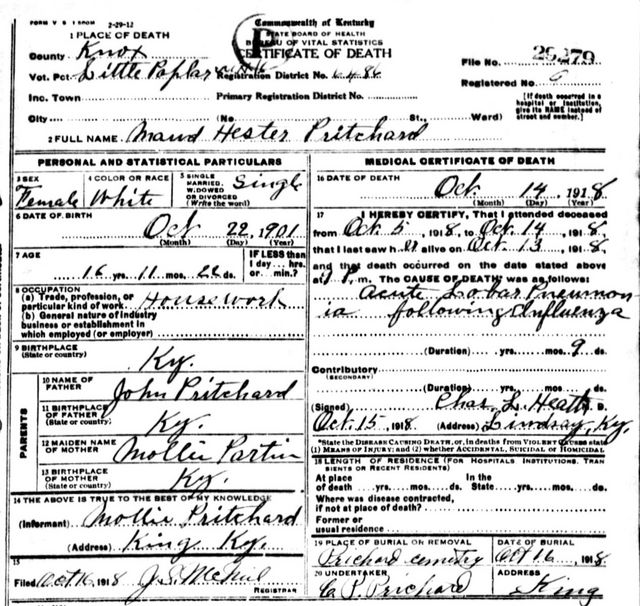 FORM V S 1 2-29-12
Commonwealth of Kentucky
STATE BOARD OF HEALTH
BUREAU OF VITAL STATISTICS
CERTIFICATE OF DEATH
1 PLACE OF DEATH
County Knox
Vot. Pct. Little Poplar Registration District No.
Inc. Town Primary Registration District No.
City (No. St., Ward)
File No. 29279
Registered No. 9
[If death occurred in a hospital or institution, give its NAME instead of street and number.]
2 FULL NAME Maud Hester Pritchard
PERSONAL AND STATISTICAL PARTICULARS
3 SEX Female
4 COLOR OR RACE White
5 SINGLE MARRIED, WIDOWED OR DIVORCED (Write the word) Single
6 DATE OF BIRTH Oct 22, 1901
(Month) (Day) (Year)
7 AGE 16 yrs. 11 mos. 22 ds.
IF LESS than 1 day... hrs. or min.?
8 OCCUPATION
(a) Trade, profession, or particular kind of work Housework
(b) General nature of industry business or establishment in which employed (or employer)
9 BIRTHPLACE (State or country) Ky.
PARENTS
10 NAME OF FATHER John Pritchard
11 BIRTHPLACE OF FATHER (State or country) Ky.
12 MAIDEN NAME OF MOTHER Mollie Partin
13 BIRTHPLACE OF MOTHER (State or country) Ky.
14 THE ABOVE IS TRUE TO THE BEST OF MY KNOWLEDGE
(Informant) Mollie Pritchard
(Address) King Ky.
15
Filed Oct 16 1918 REGISTRAR
MEDICAL CERTIFICATE OF DEATH
16 DATE OF DEATH Oct. 14 1918
(Month) (Day) (Year)
17 I HEREBY CERTIFY, That I attended deceased
from Oct 5, 1918, to Oct 14, 1918,
that I last saw her alive on Oct 13, 1918,
and that death occurred on the date stated above
at m. The CAUSE OF DEATH was as follows:
Acute Lobar Pneumon
ia following Influenza
(Duration) yrs. mos. 9 ds.
Contributory (SECONDARY)
(Duration) yrs. mos. ds.
(Signed) Chas. L. Heath D.
Oct. 15, 1918 (Address) Lindsay, Ky.
*State the DISEASE CAUSING DEATH, or, in deaths from VIOLENT CAUSES state (1) MEANS OF INJURY; and (2) whether ACCIDENTAL, SUICIDAL or HOMICIDAL
18 LENGTH OF RESIDENCE (FOR HOSPITALS INSTITUTIONS, TRANSIENTS OR RECENT RESIDENTS)
At place of death yrs. mos. ds. In the State yrs. mos. ds.
Where was disease contracted,
if not at place of death?
Former or usual residence
19 PLACE OF BURIAL OR REMOVAL Prichard cemetry
DATE OF BURIAL Oct 16, 1918
20 UNDERTAKER C. P. Prichard
ADDRESS King